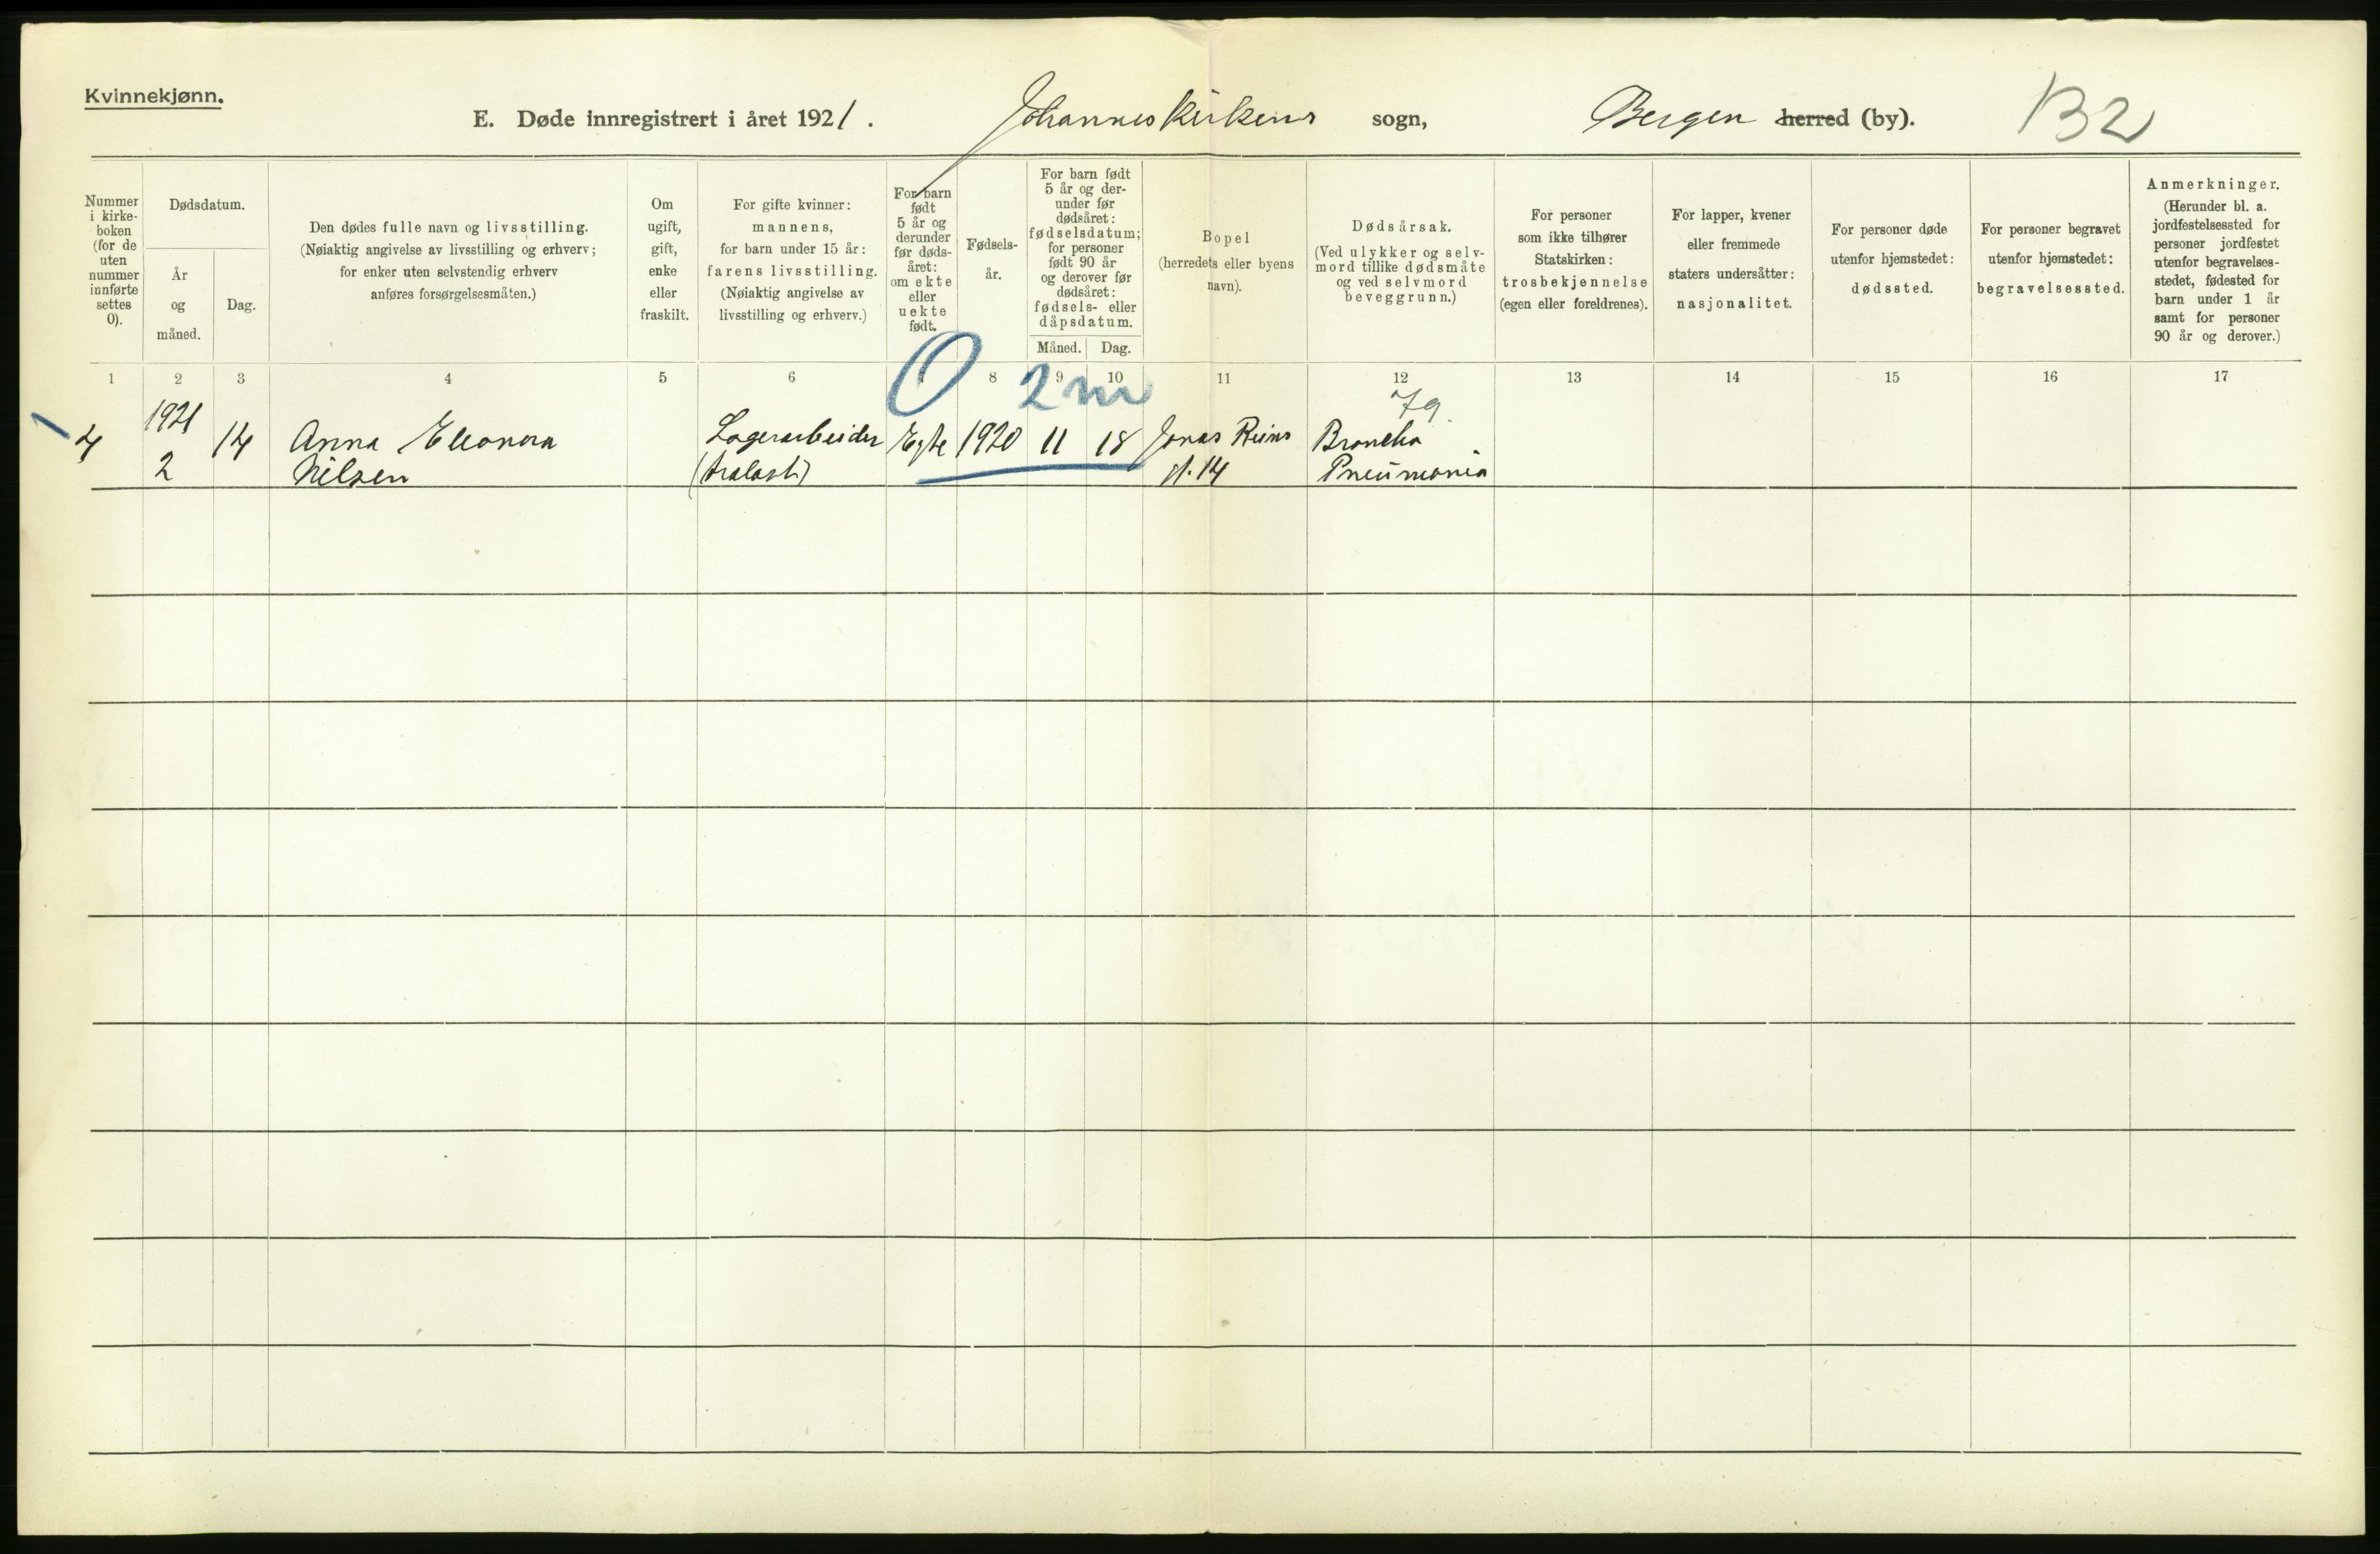 Kvinnekjønn.
E. Døde innregistrert i året 1921. Johanneskirkens sogn, Bergen herred (by). 132
Nummer
i kirke-
boken
(for de
uten
nummer
innførte
settes
0).
Dødsdatum.
År
og
måned.
Dag.
Den dødes fulle navn og livsstilling.
(Nøiaktig angivelse av livsstilling og erhverv;
for enker uten selvstendig erhverv
anføres forsørgelsesmåten.)
Om
ugift,
gift,
enke
eller
fraskilt.
For gifte kvinner:
mannens,
for barn under 15 år:
farens livsstilling.
(Nøiaktig angivelse av
livsstilling og erhverv.)
For barn
født
5 år og
derunder
før døds-
året:
om ekte
eller
uekte
født.
Fødsels-
år.
For barn født
5 år og der-
under før
dødsåret:
fødselsdatum;
for personer
født 90 år
og derover før
dødsåret:
fødsels- eller
dåpsdatum.
Måned. Dag.
Bopel
(herredets eller byens
navn).
Dødsårsak.
(Ved ulykker og selv-
mord tillike dødsmåte
og ved selvmord
beveggrunn.)
For personer
som ikke tilhører
Statskirken:
trosbekjennelse
(egen eller foreldrenes).
For lapper, kvener
eller fremmede
staters undersåtter:
nasjonalitet.
For personer døde
utenfor hjemstedet:
dødssted.
For personer begravet
utenfor hjemstedet:
begravelsessted.
Anmerkninger.
(Herunder bl. a.
jordfestelsessted for
personer jordfestet
utenfor begravelses-
stedet, fødested for
barn under 1 år
samt for personer
90 år og derover.)
1 2 3 4 5 6 8 9 10 11 12 13 14 15 16 17
0 2 m
79
1921
4 14 Anna Eleonora Lagerarbeider Egte 1920 11 18 Jonas Reins Broncho
2 Nilsen (tralast) gt. 14 Pneumonia